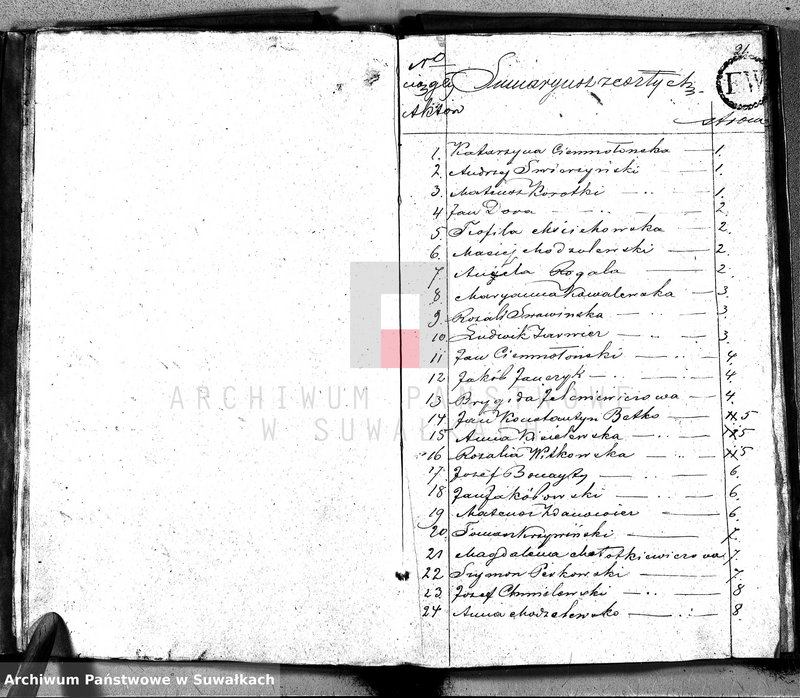 21.
No Sumaryusz zeszłych
Aktów
FW
strona
1. Katarzyna Ciemnołońska — 1.
2. Andrzej Świerzyński — 1.
3. Mateusz Korotki — 1.
4 Jan Dora — 2.
5 Teofila Mścichowska — 2.
6. Maciej Modzelewski — 2.
7 Aniela Rogala — 2.
8. Maryanna Kowalewska — 3.
9. Rozalia Srawińska — 3.
10. Ludwik — 3.
11 Jan Ciemnołoński — 4.
12 Jakób Janczyk — 4.
13 Brygida — 4.
14 Jan Konstantyn Betko — 5
15 Anna — 5
16 Rozalia Witkowska — 5
17. Józef — 6.
18 Jan Jakóbowski — 6.
19 Mateusz — 6.
20. Tomasz Krzywiński — 7.
21 Magdalena Małotkiewiczowa 7.
22 Szymon Perkowski — 7
23. Józef Chmielewski — 8
24 Anna Modzelewska — 8.
ARCHIWUM PAŃSTWOWE
W SUWAŁKACH
Archiwum Państwowe w Suwałkach